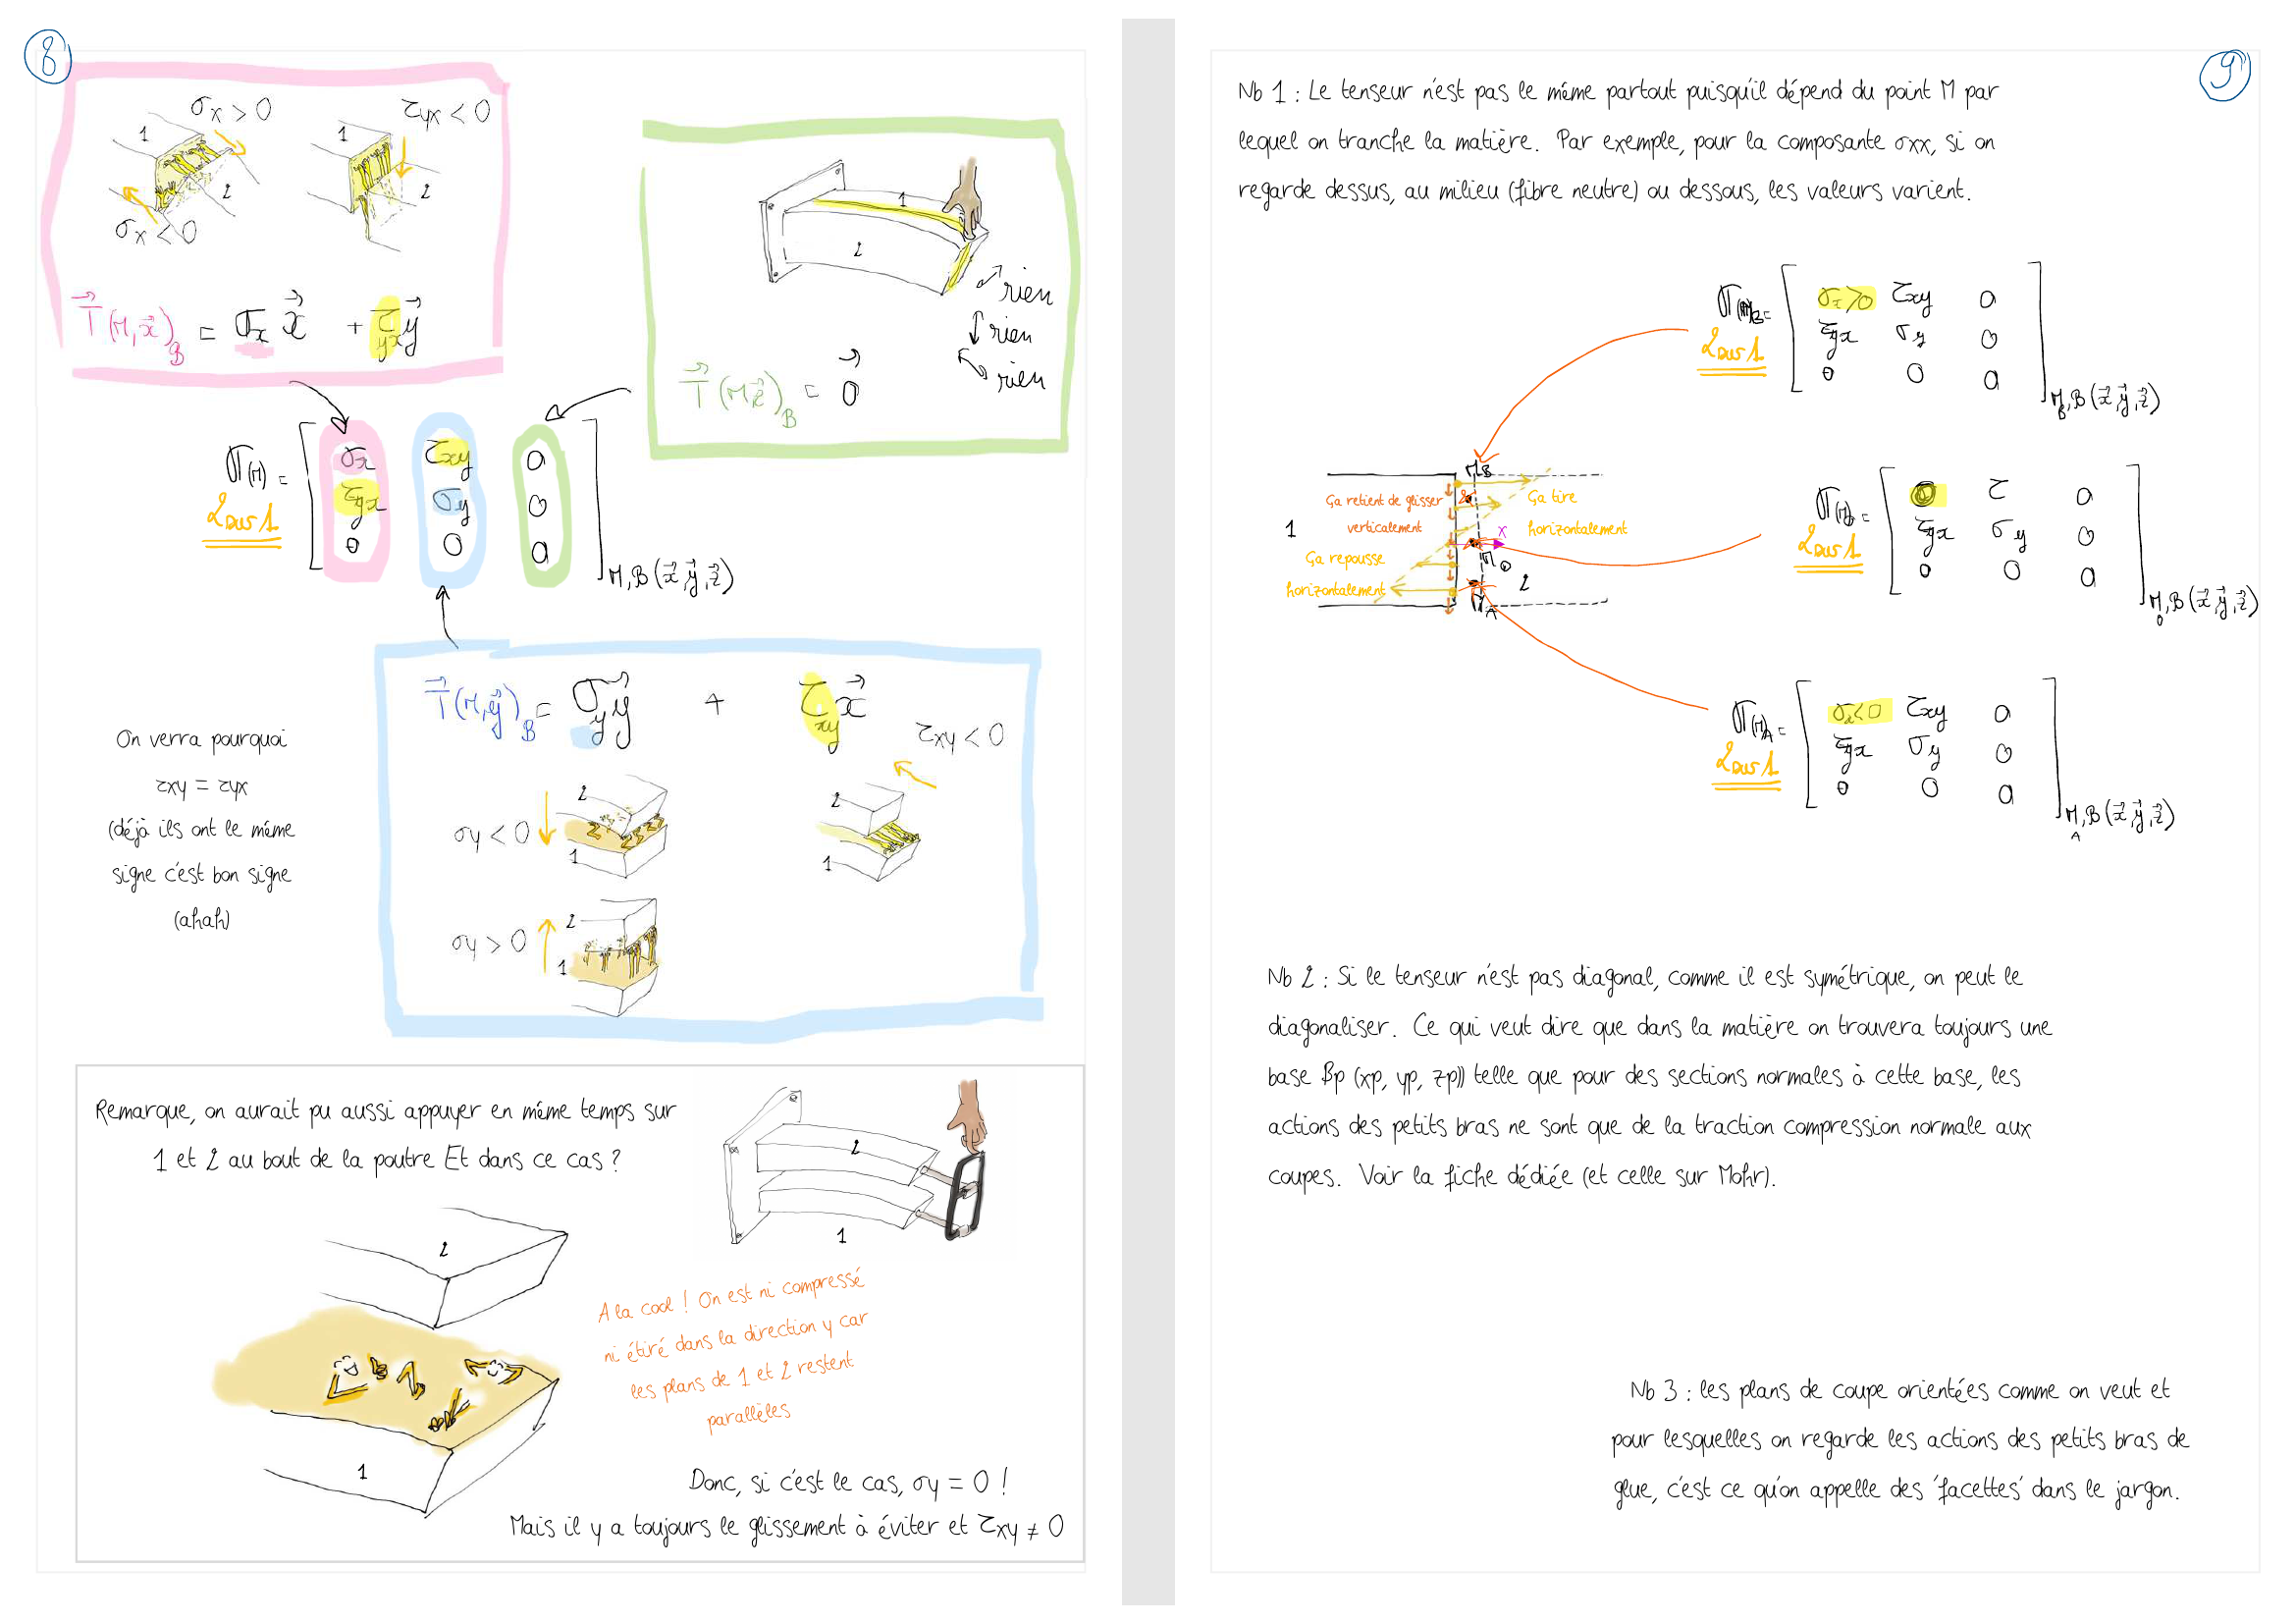 8
σx > 0
τyx < 0
1
2
σx < 0
1
2
T(M,x)B = σx x + τyx y
1
2
rien
rien
rien
T(M,z)B = 0
σ(M) =
2 sur 1
σx τxy 0
τyx σy 0
0 0 0
M,B(x,y,z)
T(M,y)B = σy y + τxy x
τxy < 0
σy < 0
2
1
2
1
σy > 0
2
1
On verra pourquoi
τxy = τyx
(déjà ils ont le même
signe c'est bon signe
(ahah)
Remarque, on aurait pu aussi appuyer en même temps sur
1 et 2 au bout de la poutre Et dans ce cas ?
2
1
2
1
A la cool ! On est ni compressé
ni étiré dans la direction y car
les plans de 1 et 2 restent
parallèles
Donc, si c'est le cas, σy = 0 !
Mais il y a toujours le glissement à éviter et τxy ≠ 0
9
Nb 1 : Le tenseur n'est pas le même partout puisqu'il dépend du point M par
lequel on tranche la matière. Par exemple, pour la composante σxx, si on
regarde dessus, au milieu (fibre neutre) ou dessous, les valeurs varient.
σ(M)B =
2 sur 1
σx>0 τxy 0
τyx σy 0
0 0 0
MB,B(x,y,z)
MB
Ça retient de glisser
verticalement
Ça tire
horizontalement
1
x
Ça repousse
horizontalement
M0
2
MA
σ(M)0 =
2 sur 1
0 τ 0
τyx σy 0
0 0 0
M0,B(x,y,z)
σ(M)A =
2 sur 1
σx<0 τxy 0
τyx σy 0
0 0 0
MA,B(x,y,z)
Nb 2 : Si le tenseur n'est pas diagonal, comme il est symétrique, on peut le
diagonaliser. Ce qui veut dire que dans la matière on trouvera toujours une
base Bp (xp, yp, zp)) telle que pour des sections normales à cette base, les
actions des petits bras ne sont que de la traction compression normale aux
coupes. Voir la fiche dédiée (et celle sur Mohr).
Nb 3 : les plans de coupe orientées comme on veut et
pour lesquelles on regarde les actions des petits bras de
glue, c'est ce qu'on appelle des 'facettes' dans le jargon.